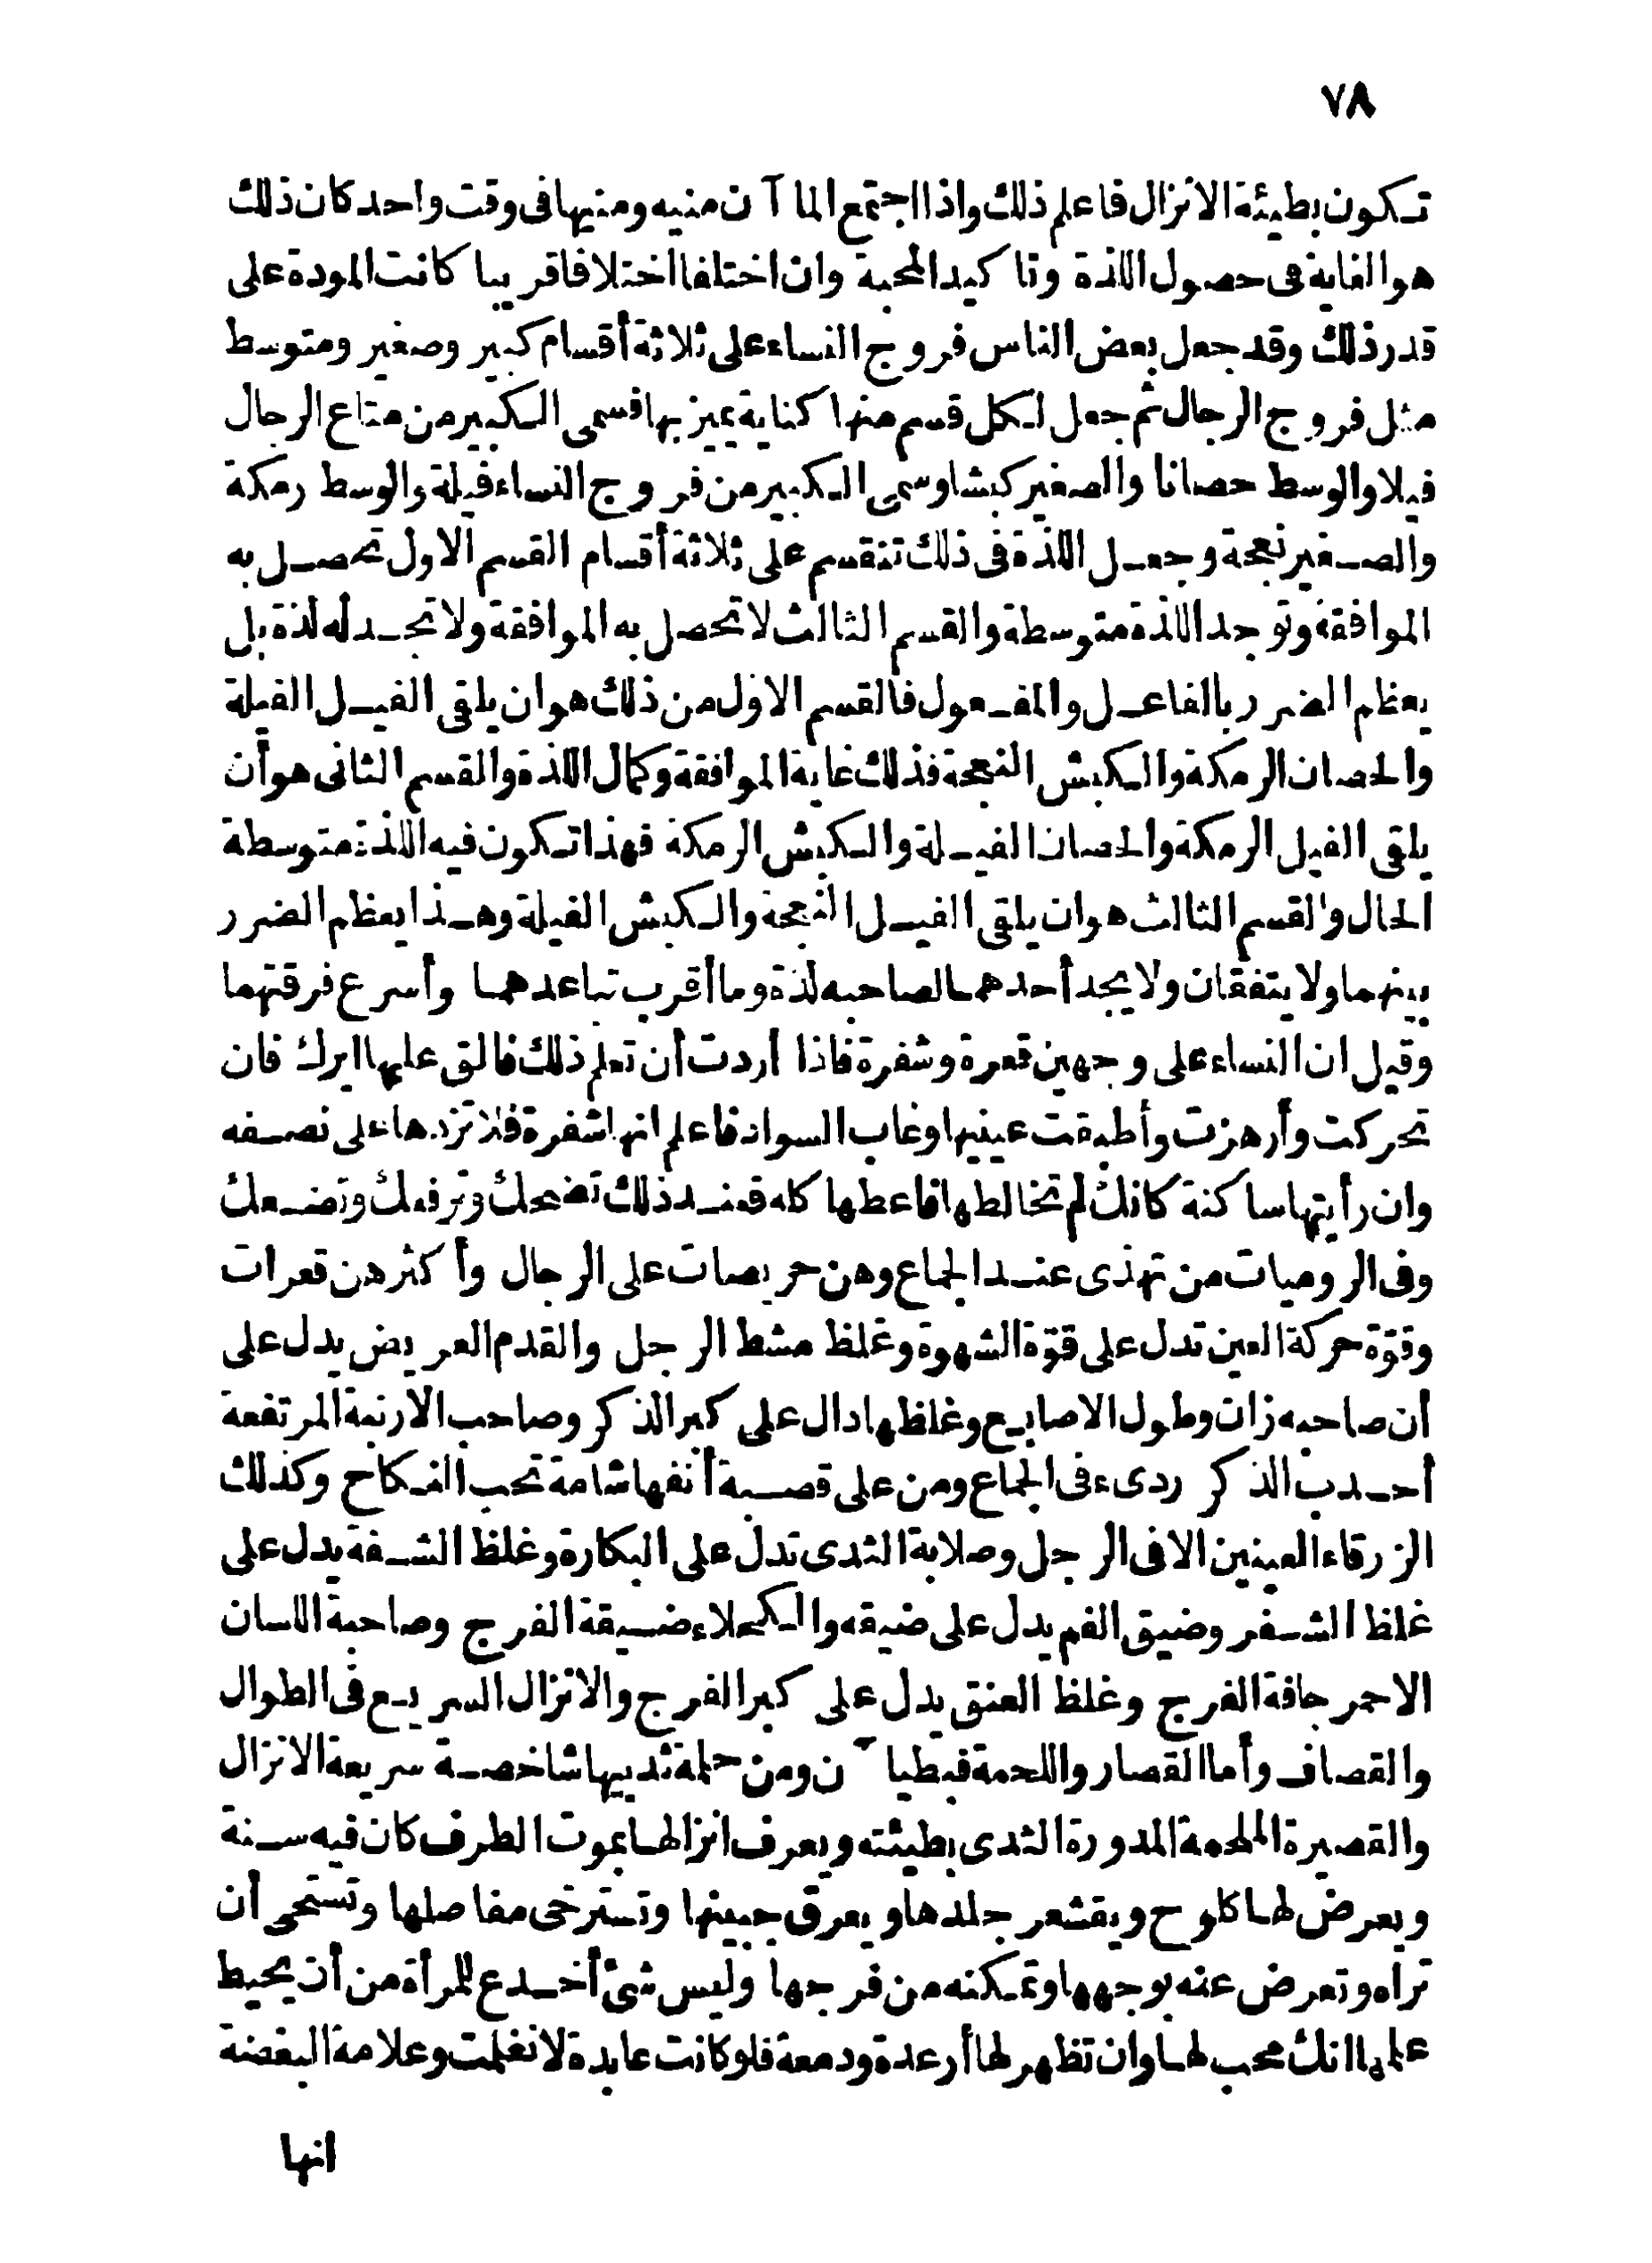 ٧٨
تكون بطيئة الانزال فاعلم ذلك واذا اجتمع الما آن منيه ومنيها فى وقت واحد كان ذلك
هو الغاية فى حصول اللذة وتا كيد المحبة وان اختلفا اختلافا قريبا كانت المودة على
قدر ذلك وقد جعل بعض الناس فروج النساء على ثلاثة أقسام كبير وصغير ومتوسط
مثل فروج الرجال ثم جعل لكل قسم منها كناية يميز بها فسمى الكبير من متاع الرجال
فيلا والوسط حصانا والصغير كبشا وسمى الكبير من فروج النساء فيلة والوسط رمكة
والصغير نعجة وجعل اللذة فى ذلك تنقسم على ثلاثة أقسام القسم الاول تحصل به
الموافقة وتوجد اللذة متوسطة والقسم الثالث لا تحصل به الموافقة ولا تجد له لذة بل
يعظم الضرر بالفاعل والمفعول فالقسم الاول من ذلك هو ان يلقى الفيل الفيلة
والحصان الرمكة والكبش النعجة فذلك غاية الموافقة وكمال اللذة والقسم الثانى هو أن
يلقى الفيل الرمكة والحصان الفيلة والكبش الرمكة فهذا تكون فيه اللذة متوسطة
الحال والقسم الثالث هو ان يلقى الفيل النعجة والكبش الفيلة وهذا يعظم الضرر
بينهما ولا يتفقان ولا يجد أحدهما لصاحبه لذة وما أقرب تباعدهما وأسرع فرقتهما
وقيل ان النساء على وجهين قعرة وشفرة فاذا أردت أن تعلم ذلك فالق عليها ايرك فان
تحركت وأرهزت وأطبقت عينيها وغاب السواد فاعلم انها شفرة فلا تزدها على نصفه
وان رأيتها ساكنة كانك لم تخالطها فاعطها كله فعند ذلك تضحك وترفعك وتضعك
وفى الروميات من تهذى عند الجماع وهن حريصات على الرجال وأكثرهن قعرات
وقوّة حركة العين تدل على قوّة الشهوة وغلظ مشط الرجل والقدم العريض يدل على
أن صاحبه زان وطول الاصابع وغلظها دال على كبر الذكر وصاحب الارنبة المرتفعة
أحدب الذكر ردىء فى الجماع ومن على قصبة أنفها شامة تحب النكاح وكذلك
الزرقاء العينين الا فى الرجل وصلابة الثدى تدل على البكارة وغلظ الشفة يدل على
غلظ الشفر وضيق الفم يدل على ضيقه والكحلاء ضيقة الفرج وصاحبة اللسان
الاحمر جافة الفرج وغلظ العنق يدل على كبر الفرج والانزال السريع فى الطوال
والقصاف وأما القصار واللحمة فبطيا آن ومن حلمة ثدييها شاخصة سريعة الانزال
والقصيرة الملحمة المدورة الثدى بطيئته ويعرف انزالها بموت الطرف كان فيه سنة
ويعرض لها كلوح ويقشعر جلدها ويعرق جبينها وتسترخى مفاصلها وتستحى أن
تراه وتعرض عنه بوجهها وتمكنه من فرجها وليس شئ أخدع للمرأة من أن يحيط
علمها انك محب لها وان تظهر لها أرعدة ودمعة فلو كانت عابدة لانغلمت وعلامة البغضة
انها